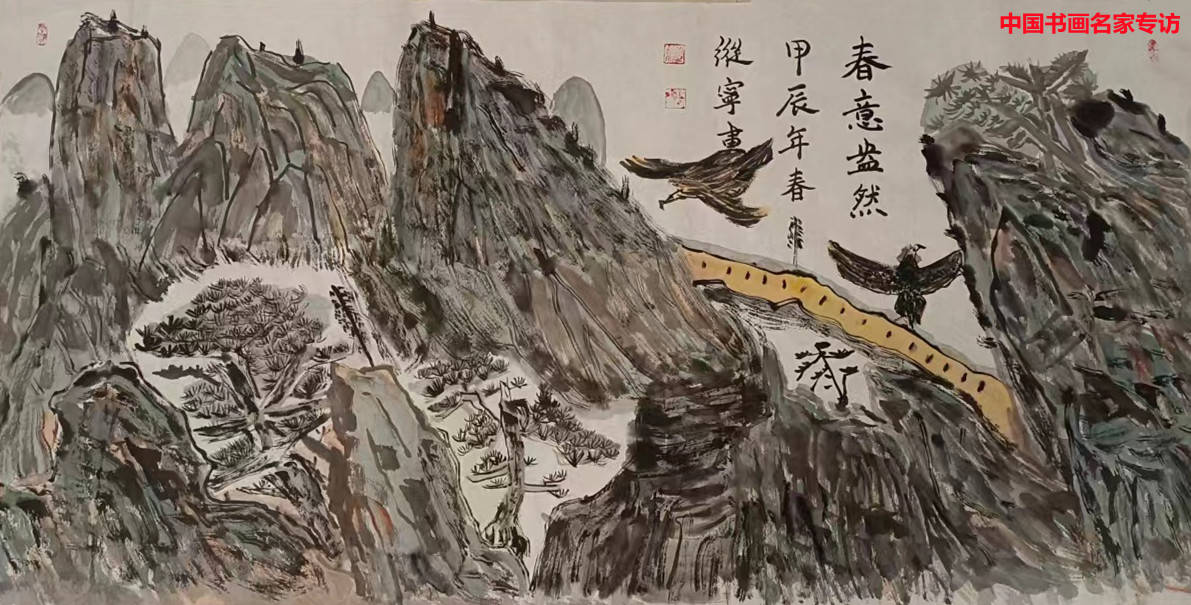 中国书画名家专访
春意盎然
甲辰年春
縱寧畫